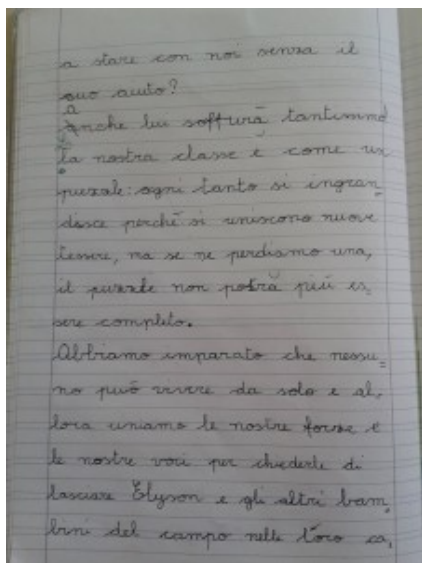 a stare con noi senza il
suo aiuto?
Anche lui soffrirà tantissimo
La nostra classe è come un
puzzle: ogni tanto si ingran
disce perché si uniscono nuove
tessere, ma se ne perdiamo una,
il puzzle non potrà più es_
sere completo.
Abbiamo imparato che nessu=
no può vivere da solo e al_
lora uniamo le nostre forze e
le nostre voci per chiederle di
lasciare Elyson e gli altri bam_
bini del campo nelle loro ca_